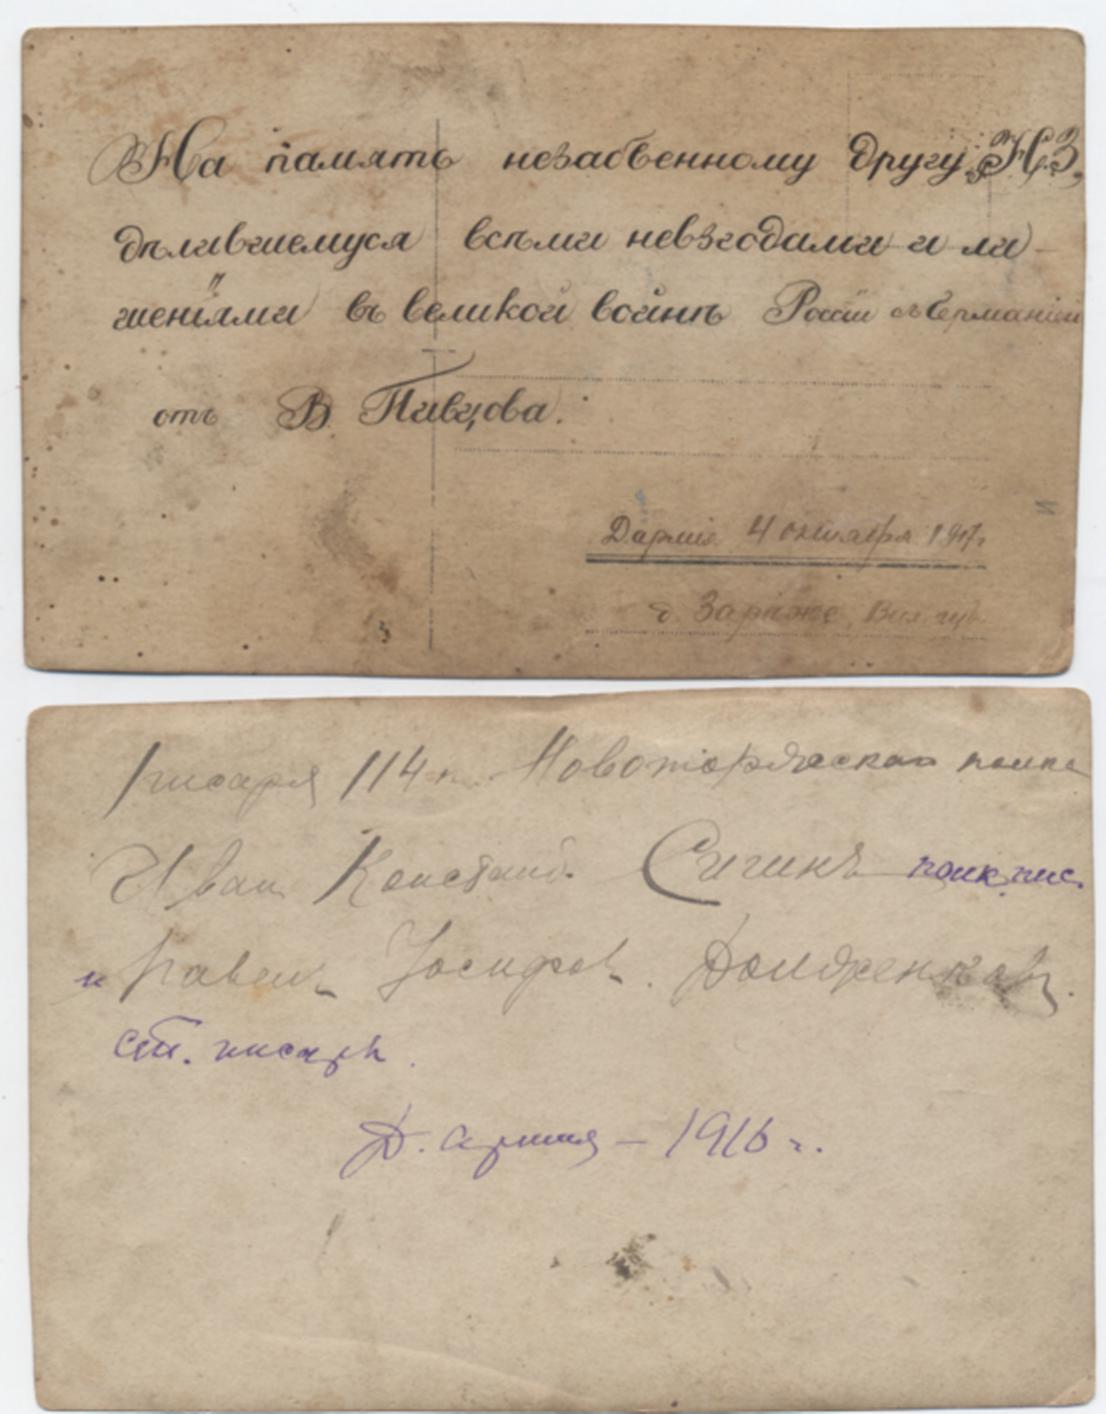 На память незабвенному другу
дѣлившемуся всѣми невзгодами и ли
шеніями въ великой войнѣ Россіи съ Германіей
отъ В. Пивцова.
Д. армія 4 октября 1917г.
д. Вил. губ.
писаря 114 п. Новоторжскаго полка
Иван Констант. Сигинъ полк. пис.
и Павелъ Іосифов.
ст. писарь.
Д. армия – 1916 г.